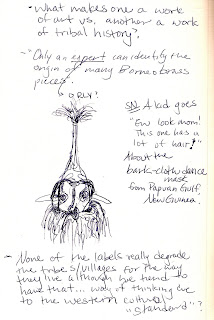 - What makes one a work
of art vs. another a work
of tribal history?
- "Only an expert can identify the
origin of many Borneo brass
pieces."
↳ O RLY?
SN: A kid goes
"Ew look mom!
This one has a
lot of hair!"
About the
bark-cloth dance
mask
from Papuan Gulf,
New Guinea.
- None of the labels really degrade
the tribes/villages for the way
they live although we tend to
have that... way of thinking due
to the western cultural
"standard"?